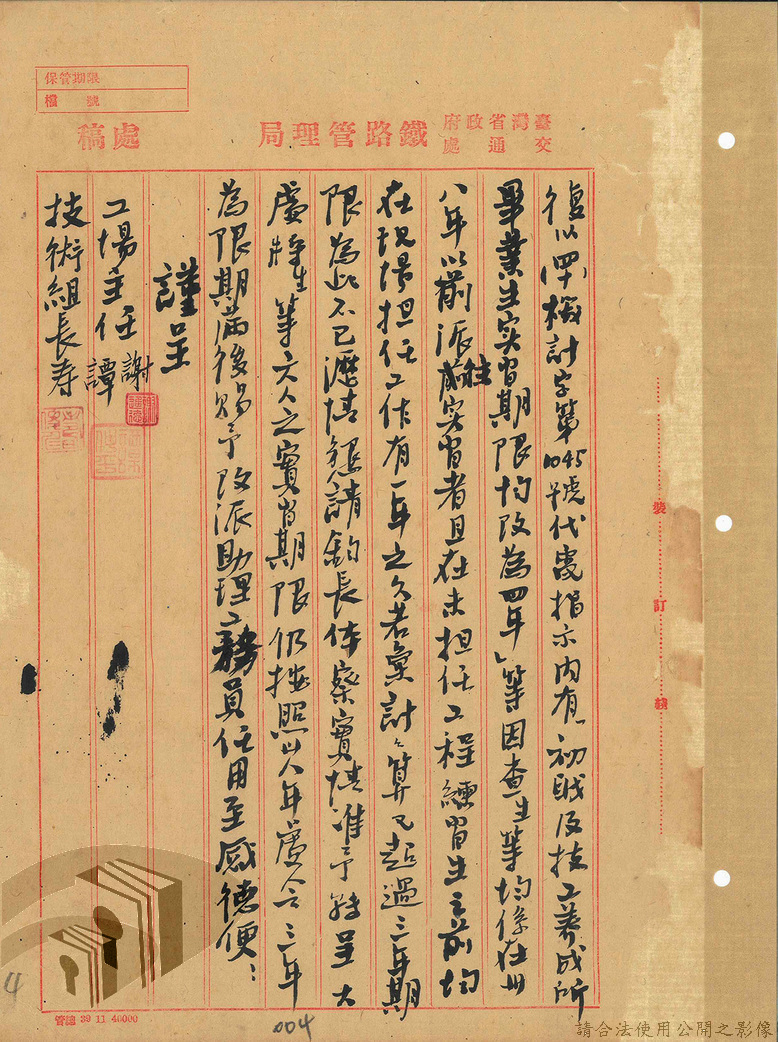 保管期限
檔號
臺灣省政府
交通處
鐵路管理局
處稿
復以四機計字第1045號代電指示內有「初職及技工養成所
畢業生实習期限均改為四年」等因查生等均係在卅
八年以前派往实習者且在未担任工程練習生之前均
在現場担任工作有一年之久若彙計之算已超過三年期
限為此不已瀝情懇請鈞長体察實情准予轉呈大
處將生等六人之實習期限仍按照卅八年處令三年
為限期滿後賜予改派助理工務員任用至感德便
謹呈
工場主任 謝 譚
技術組長 寿
裝
訂
線
管總 39 11 40000
004
4
請合法使用公開之影像